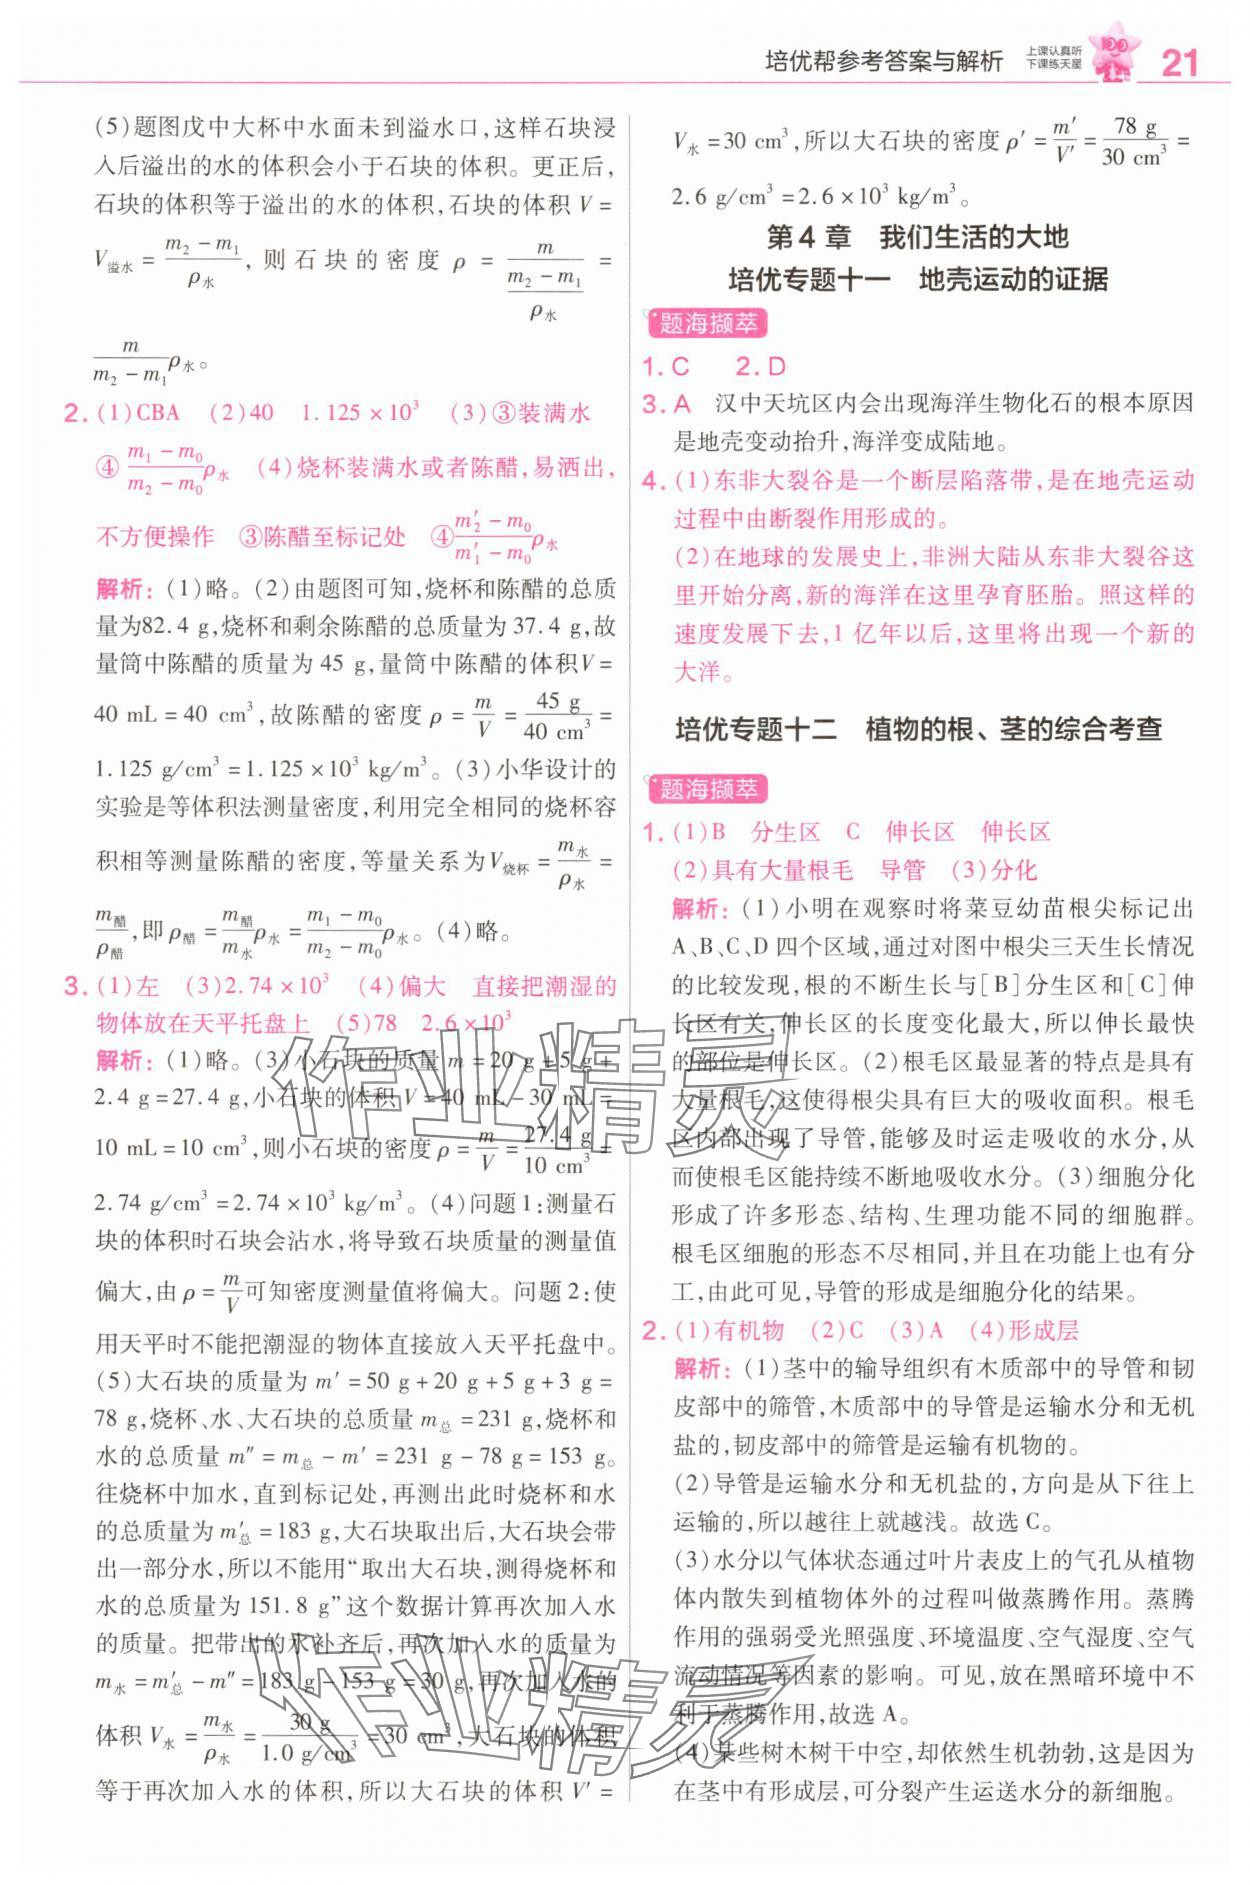 培优帮参考答案与解析 上课认真听 下课练天星 21
(5)题图戊中大杯中水面未到溢水口,这样石块浸
入后溢出的水的体积会小于石块的体积。更正后,
石块的体积等于溢出的水的体积,石块的体积 V =
V溢水 = (m₂ - m₁)/ρ水, 则石块的密度 ρ = m/((m₂ - m₁)/ρ水) =
m/(m₂ - m₁) ρ水。
2. (1)CBA (2)40 1.125×10³ (3)③装满水
④ (m₁ - m₀)/(m₂ - m₀) ρ水 (4)烧杯装满水或者陈醋,易洒出,
不方便操作 ③陈醋至标记处 ④ (m₂′ - m₀)/(m₁′ - m₀) ρ水
解析:(1)略。(2)由题图可知,烧杯和陈醋的总质
量为82.4 g,烧杯和剩余陈醋的总质量为 37.4 g,故
量筒中陈醋的质量为 45 g,量筒中陈醋的体积V =
40 mL = 40 cm³,故陈醋的密度 ρ = m/V = 45 g/40 cm³ =
1.125 g/cm³ = 1.125×10³ kg/m³。(3)小华设计的
实验是等体积法测量密度,利用完全相同的烧杯容
积相等测量陈醋的密度,等量关系为V烧杯 = m水/ρ水 =
m醋/ρ醋,即 ρ醋 = m醋/m水 ρ水 = (m₁ - m₀)/(m₂ - m₀) ρ水。(4)略。
3. (1)左 (3)2.74×10³ (4)偏大 直接把潮湿的
物体放在天平托盘上 (5)78 2.6×10³
解析:(1)略。(3)小石块的质量 m = 20 g + 5 g +
2.4 g = 27.4 g,小石块的体积 V = 40 mL - 30 mL =
10 mL = 10 cm³,则小石块的密度 ρ = m/V = 27.4 g/10 cm³ =
2.74 g/cm³ = 2.74×10³ kg/m³。(4)问题1:测量石
块的体积时石块会沾水,将导致石块质量的测量值
偏大,由 ρ = m/V 可知密度测量值将偏大。问题2:使
用天平时不能把潮湿的物体直接放入天平托盘中。
(5)大石块的质量 m′ = 50 g + 20 g + 5 g + 3 g =
78 g,烧杯、水、大石块的总质量 m总 = 231 g,烧杯和
水的总质量 m″ = m总 - m′ = 231 g - 78 g = 153 g。
往烧杯中加水,直到标记处,再测出此时烧杯和水
的总质量为 m总′ = 183 g,大石块取出后,大石块会带
出一部分水,所以不能用“取出大石块,测得烧杯和
水的总质量为 151.8 g”这个数据计算再次加入水
的质量。把带出的水补齐后,再次加入水的质量为
m水 = m总′ - m″ = 183 g - 153 g = 30 g,再次加入水的
体积 V水 = m水/ρ水 = 30 g/1.0 g/cm³ = 30 cm³,大石块的体积
等于再次加入水的体积,所以大石块的体积 V′ =
V水 = 30 cm³,所以大石块的密度 ρ′ = m′/V′ = 78 g/30 cm³ =
2.6 g/cm³ = 2.6×10³ kg/m³。
第4章 我们生活的大地
培优专题十一 地壳运动的证据
题海撷萃
1. C 2. D
3. A 汉中天坑区内会出现海洋生物化石的根本原因
是地壳变动抬升,海洋变成陆地。
4. (1)东非大裂谷是一个断层陷落带,是在地壳运动
过程中由断裂作用形成的。
(2)在地球的发展史上,非洲大陆从东非大裂谷这
里开始分离,新的海洋在这里孕育胚胎。照这样的
速度发展下去,1亿年以后,这里将出现一个新的
大洋。
培优专题十二 植物的根、茎的综合考查
题海撷萃
1. (1)B 分生区 C 伸长区 伸长区
(2)具有大量根毛 导管 (3)分化
解析:(1)小明在观察时将菜豆幼苗根尖标记出
A、B、C、D四个区域,通过对图中根尖三天生长情况
的比较发现,根的不断生长与[B]分生区和[C]伸
长区有关,伸长区的长度变化最大,所以伸长最快
的部位是伸长区。(2)根毛区最显著的特点是具有
大量根毛,这使得根尖具有巨大的吸收面积。根毛
区内部出现了导管,能够及时运走吸收的水分,从
而使根毛区能持续不断地吸收水分。(3)细胞分化
形成了许多形态、结构、生理功能不同的细胞群。
根毛区细胞的形态不尽相同,并且在功能上也有分
工,由此可见,导管的形成是细胞分化的结果。
2. (1)有机物 (2)C (3)A (4)形成层
解析:(1)茎中的输导组织有木质部中的导管和韧
皮部中的筛管,木质部中的导管是运输水分和无机
盐的,韧皮部中的筛管是运输有机物的。
(2)导管是运输水分和无机盐的,方向是从下往上
运输的,所以越往上就越浅。故选C。
(3)水分以气体状态通过叶片表皮上的气孔从植物
体内散失到植物体外的过程叫做蒸腾作用。蒸腾
作用的强弱受光照强度、环境温度、空气湿度、空气
流动情况等因素的影响。可见,放在黑暗环境中不
利于蒸腾作用,故选A。
(4)某些树木树干中空,却依然生机勃勃,这是因为
在茎中有形成层,可分裂产生运送水分的新细胞。
作业精灵
作业精灵